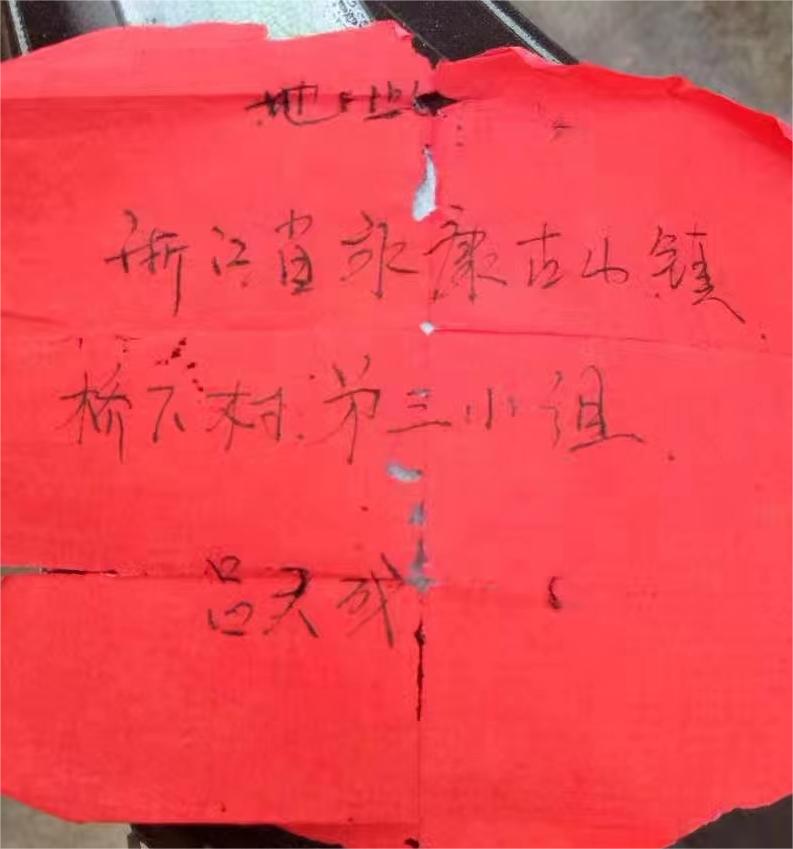 地址
浙江省永康古山镇
桥下村.第三小组.
吕天成